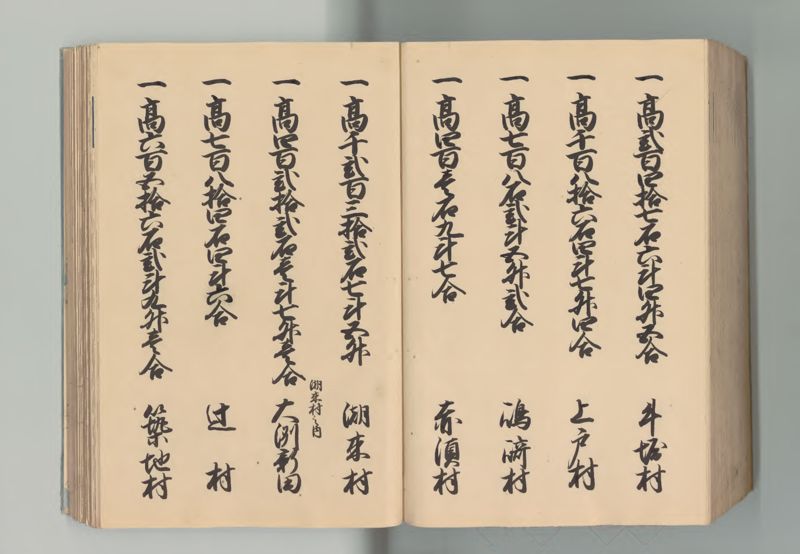 一高弐百四拾七石六斗四升五合 牛堀村
一高千百八拾六石四斗七升四合 上戸村
一高七百八石弐斗五升弐合 嶋崎村
一高四百壱石九斗七合 赤須村
一高千弐百三拾弐石七斗五升 潮来村
潮来村之内
一高四百弐拾弐石壱斗七升壱合 大洲新田
一高七百八拾四石四斗六合 辻村
一高六百五拾六石弐斗九升壱合 築地村